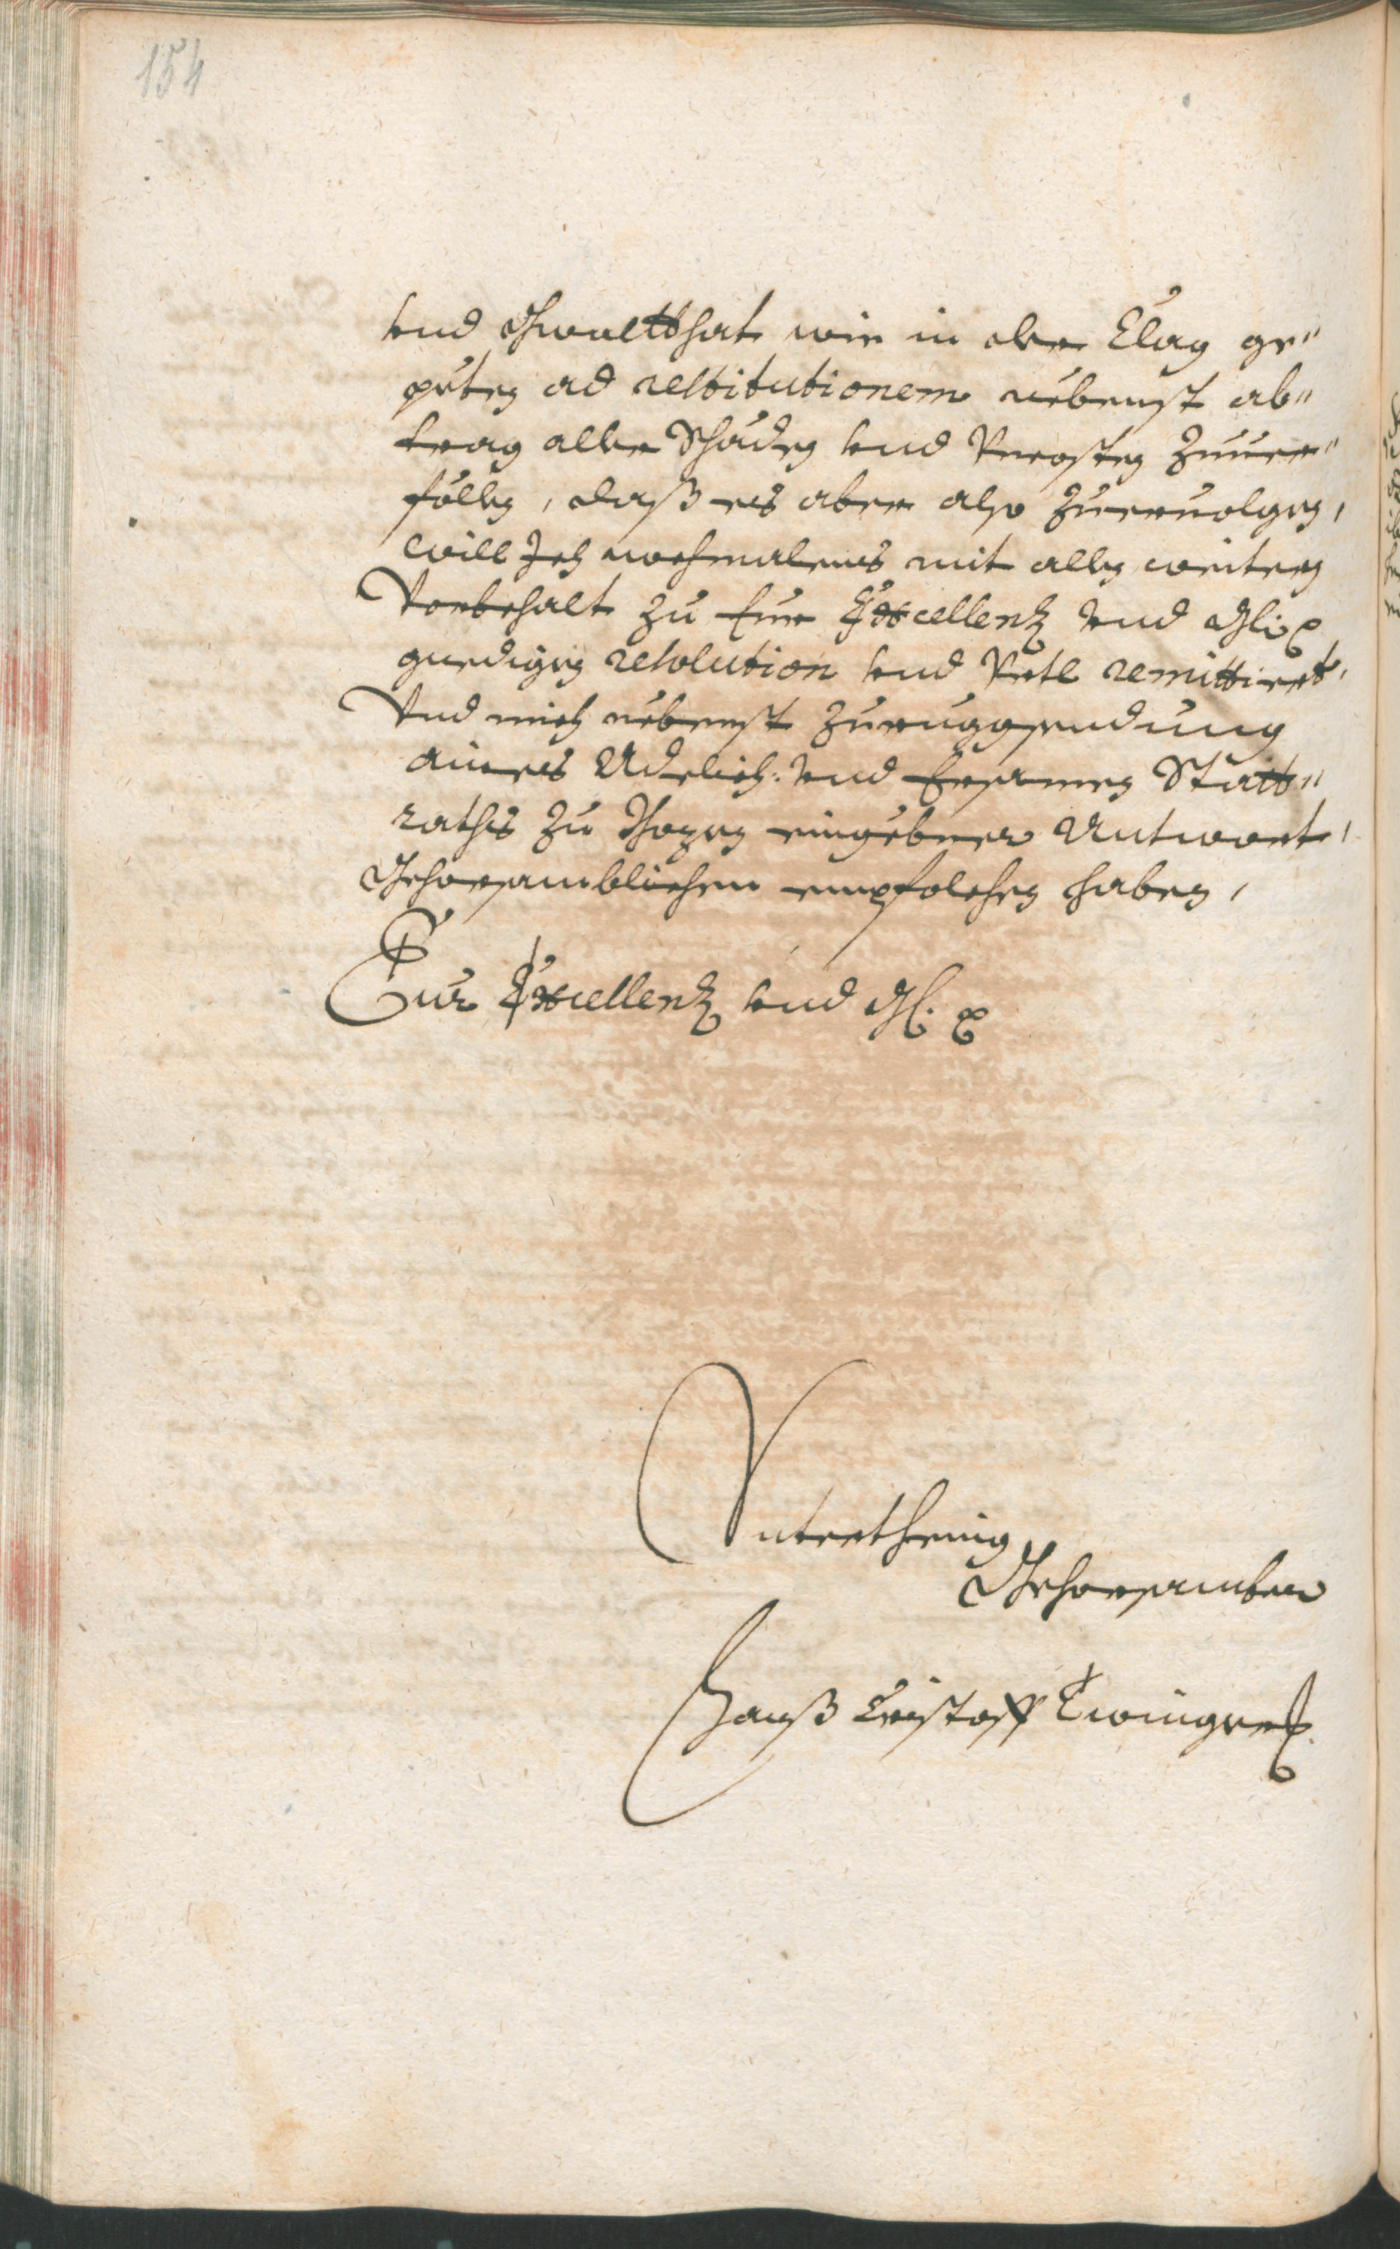 154
vnd Gwaltthat wie in der Clag ge„
peten ad restitutionem nebenst ab„
trag aller Schäden vnd Vncosten zuuer„
föllen, daß es aber also zueruolgen,
will Ich nochmalens mit allen weitern
Vorbehalt zu Eur Excellenz vnd
gnedigen resolution vnd Vrtl remittiert,
Vnd mich nebenst zuruggsendung
aines Adelich: vnd Ersamen Statt„
raths zu Bozen eingebner Antwort,
Gehorsamblichen empfolchen haben,
Eur Excellenz vnd G.
Vnterthenig
Gehorsamber
Hanß Cristoff